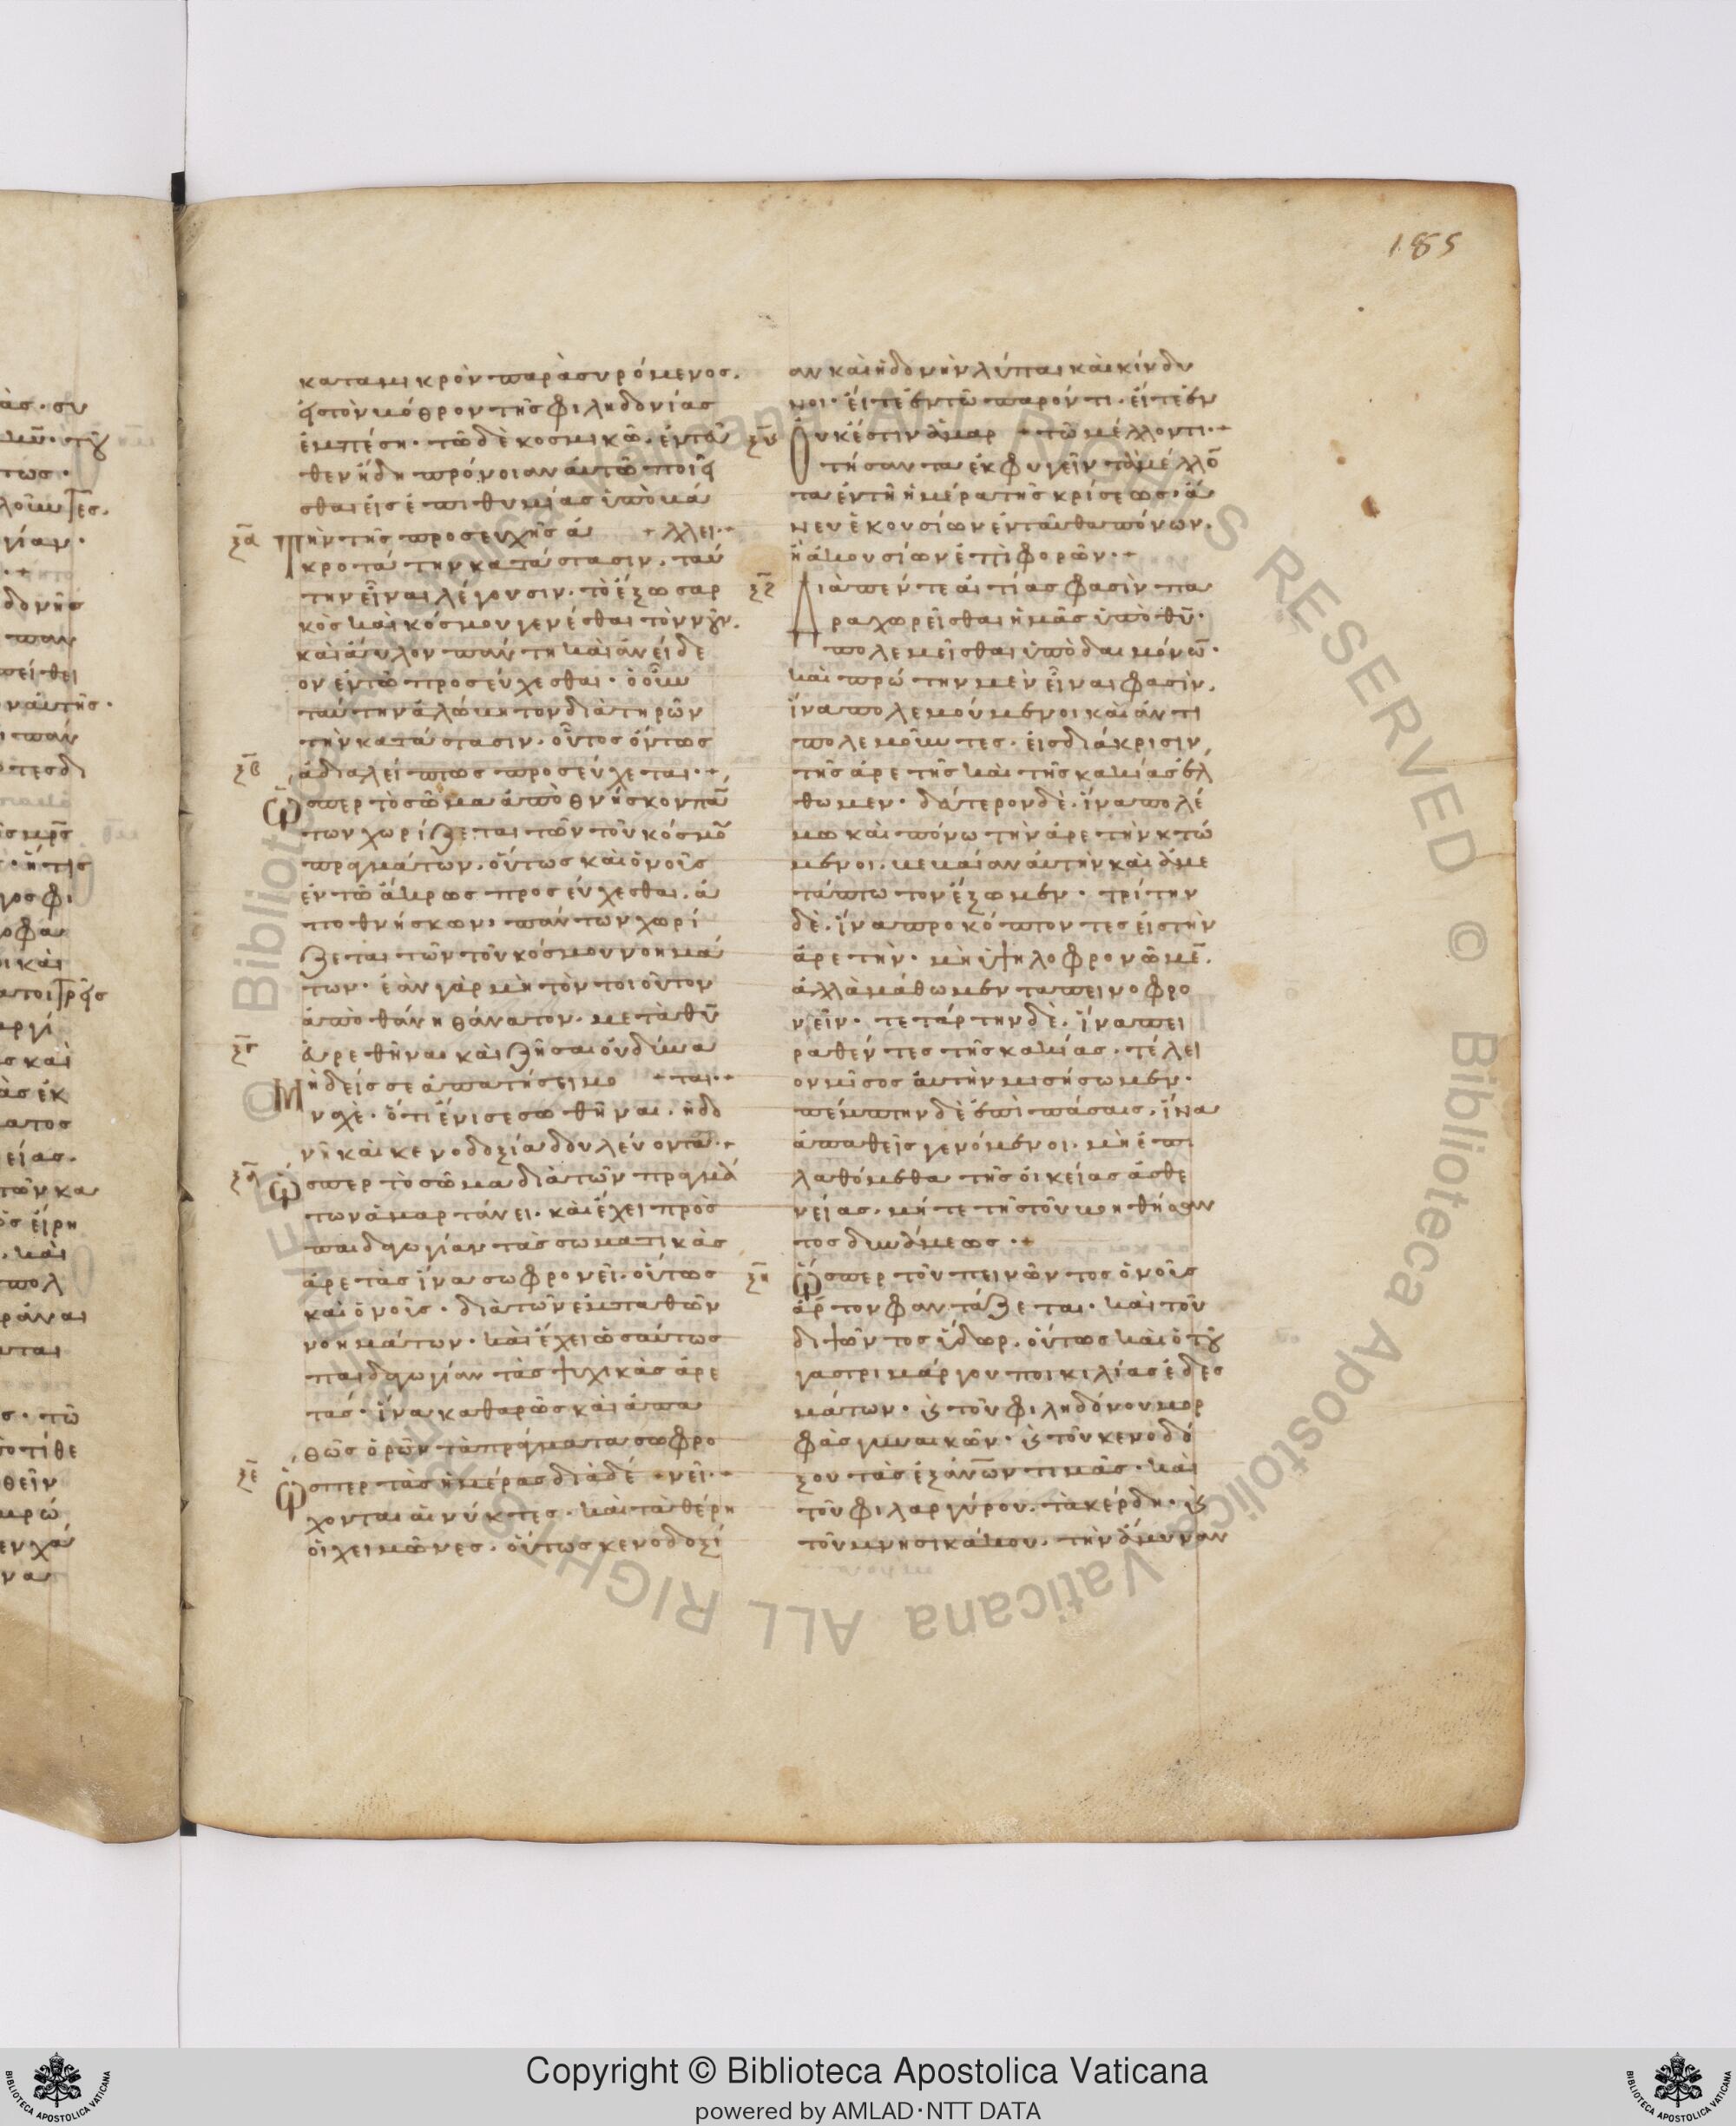 185
κατα μικρὸν παρασυρόμενος.
εἰς τὸν μόθρον τῆς φιληδονίας
ἐμπέση. τῶ δὲ κοσμικῶ. ἐντεῦ
θεν ἤδη πρόνοιαν αὐτῶ ποιεῖ
σθαι εἰς ἐπιθυμίας ὑπὸ μά
ξα Τὴν τῆς προσευχῆς ἀ + λλει. +
κροτάτην κατάστασιν. ταύ
την εἶναι λέγουσιν. τὸ ἔξω σαρ
κὸς καὶ κόσμου γενέσθαι τὸν νοῦν.
καὶ ἄυλον πάντη καὶ ἀνείδε
ον ἐν τῶ προσεύχεσθαι. ὁ οὖν
ταύτην ἀλώβητον διατηρῶν
τὴν κατάστασιν. οὗτος ὄντως
ξβ ἀδιαλείπτως προσεύχεται. +
Ὥσπερ τὸ σῶμα ἀποθνῆσκον πάν
των χωρίζεται τῶν τοῦ κόσμου
πραγμάτων. οὕτως καὶ ὁ νοῦς
ἐν τῶ ἄκρως προσεύχεσθαι. ἀ
ποθνήσκων, πάντων χωρί
ζεται τῶν τοῦ κόσμου νοημά
των. ἐὰν γὰρ μὴ τὸν τοιοῦτον
ἀποθάνη θάνατον. μετὰ θῦ
ξγ εὑρεθῆναι καὶ ζῆσαι οὐ δύνα
Μηδείς σε ἀπατήσει μο + ται. +
ναχέ. ὅτι ἔνι σε σωθῆναι. ἡδο
νῆ καὶ κενοδοξία δουλεύοντα. +
ξδ Ὥσπερ τὸ σῶμα διὰ τῶν πραγμά
των ἁμαρτάνει. καὶ ἔχει πρὸς
παιδαγωγίαν τὰς σωματικὰς
ἀρετὰς ἵνα σωφρονεῖ. οὕτως
καὶ ὁ νοῦς. διὰ τῶν ἐμπαθῶν
νοημάτων. καὶ ἔχει ὡσαύτως
παιδαγωγίαν τὰς ψυχικὰς ἀρε
τάς. ἵνα καθαρῶς καὶ ἀπα
θῶς ὁρῶν τὰ πράγματα σωφρο
ξε Ὥσπερ τὰς ἡμέρας διαδέ + νεῖ. +
χονται αἱ νύκτες. καὶ τὰ θέρη
οἱ χειμῶνες. οὕτως κενοδοξί
αν καὶ ἡδονὴν λύπαι καὶ κίνδυ
νοι. εἴτε ἐν τῶ παρόντι. εἴτε ἐν
ξς Οὐκ ἔστιν ἁμαρ + τῶ μέλλοντι. +
τήσαντα ἐκφυγεῖν τὸ μέλλον
τα ἐν τῆ ἡμέρα τῆς κρίσεως. ἄ
νευ ἑκουσίων ἐνταῦθα πόνων.
ἢ ἀκουσίων ἐπιφορῶν. +
ξζ Διὰ πέντε αἰτίας φασὶν πα
ραχωρεῖσθαι ἡμᾶς ὑπὸ θῦ.
πολεμεῖσθαι ὑπὸ δαιμόνων.
καὶ πρώτην μὲν εἶναι φασὶν.
ἵνα πολεμούμενοι καὶ ἀντι
πολεμοῦντες. εἰς διάκρισιν
τῆς ἀρετῆς καὶ τῆς κακίας ἔλ
θωμεν. δεύτερον δὲ. ἵνα πολέ
μω καὶ πόνω τὴν ἀρετὴν κτώ
μενοι. βεβαίαν αὐτὴν καὶ ἀμε
τάπτωτον ἕξωμεν. τρίτην
δὲ. ἵνα προκόπτοντες εἰς τὴν
ἀρετὴν. μὴ ὑψηλοφρονῶμεν.
ἀλλὰ μάθωμεν ταπεινοφρο
νεῖν. τετάρτην δὲ. ἵνα πει
ραθέντες τῆς κακίας. τέλει
ον μῖσος αὐτὴν μισήσωμεν.
πέμπτην δὲ ἐπὶ πάσαις. ἵνα
ἀπαθεῖς γενόμενοι. μὴ ἐπι
λαθόμεθα τῆς οἰκείας ἀσθε
νείας. μήτε τῆς τοῦ βοηθήσαν
τος δυνάμεως. +
ξη Ὥσπερ τοῦ πεινῶντος ὁ νοῦς
ἄρτον φαντάζεται. καὶ τοῦ
διψῶντος ὕδωρ. οὕτως καὶ ὁ τοῦ
γαστριμάργου ποικιλίας ἐδεσ
μάτων. καὶ τοῦ φιληδόνου μορ
φὰς γυναικῶν. καὶ τοῦ κενοδό
ξου τὰς ἐξ ἀνῶν τιμάς. καὶ
τοῦ φιλαργύρου. τὰ κέρδη. καὶ
τοῦ μνησικάκου. τὴν ἄμυναν
Copyright © Biblioteca Apostolica Vaticana
powered by AMLAD·NTT DATA